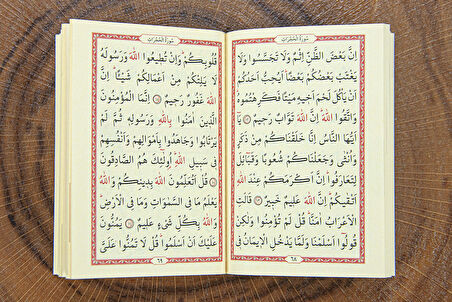 سُورَةُ الْحُجُرَاتِ
اِنَّ بَعْضَ الظَّنِّ اِثْمٌ وَلَا تَجَسَّسُوا وَلَا
يَغْتَبْ بَعْضُكُمْ بَعْضًا اَيُحِبُّ اَحَدُكُمْ
اَنْ يَأْكُلَ لَحْمَ اَخِيهِ مَيْتًا فَكَرِهْتُمُوهُ
وَاتَّقُوا اللّٰهَ اِنَّ اللّٰهَ تَوَّابٌ رَحِيمٌ يَا
اَيُّهَا النَّاسُ اِنَّا خَلَقْنَاكُمْ مِنْ ذَكَرٍ
وَاُنْثٰى وَجَعَلْنَاكُمْ شُعُوبًا وَقَبَائِلَ
لِتَعَارَفُوا اِنَّ اَكْرَمَكُمْ عِنْدَ اللّٰهِ
اَتْقٰيكُمْ اِنَّ اللّٰهَ عَلِيمٌ خَبِيرٌ قَالَتِ
الْاَعْرَابُ اٰمَنَّا قُلْ لَمْ تُؤْمِنُوا وَلٰكِنْ
قُولُوا اَسْلَمْنَا وَلَمَّا يَدْخُلِ الْاِيمَانُ فِي
٦٨
سُورَةُ الْحُجُرَاتِ
قُلُوبِكُمْ وَاِنْ تُطِيعُوا اللّٰهَ وَرَسُولَهُ
لَا يَلِتْكُمْ مِنْ اَعْمَالِكُمْ شَيْئًا اِنَّ
اللّٰهَ غَفُورٌ رَحِيمٌ اِنَّمَا الْمُؤْمِنُونَ
الَّذِينَ اٰمَنُوا بِاللّٰهِ وَرَسُولِهِ ثُمَّ لَمْ
يَرْتَابُوا وَجَاهَدُوا بِاَمْوَالِهِمْ وَاَنْفُسِهِمْ
فِي سَبِيلِ اللّٰهِ اُولٰئِكَ هُمُ الصَّادِقُونَ
قُلْ اَتُعَلِّمُونَ اللّٰهَ بِدِينِكُمْ وَاللّٰهُ
يَعْلَمُ مَا فِي السَّمٰوَاتِ وَمَا فِي الْاَرْضِ
وَاللّٰهُ بِكُلِّ شَيْءٍ عَلِيمٌ يَمُنُّونَ
عَلَيْكَ اَنْ اَسْلَمُوا قُلْ لَا تَمُنُّوا عَلَيَّ
٦٩